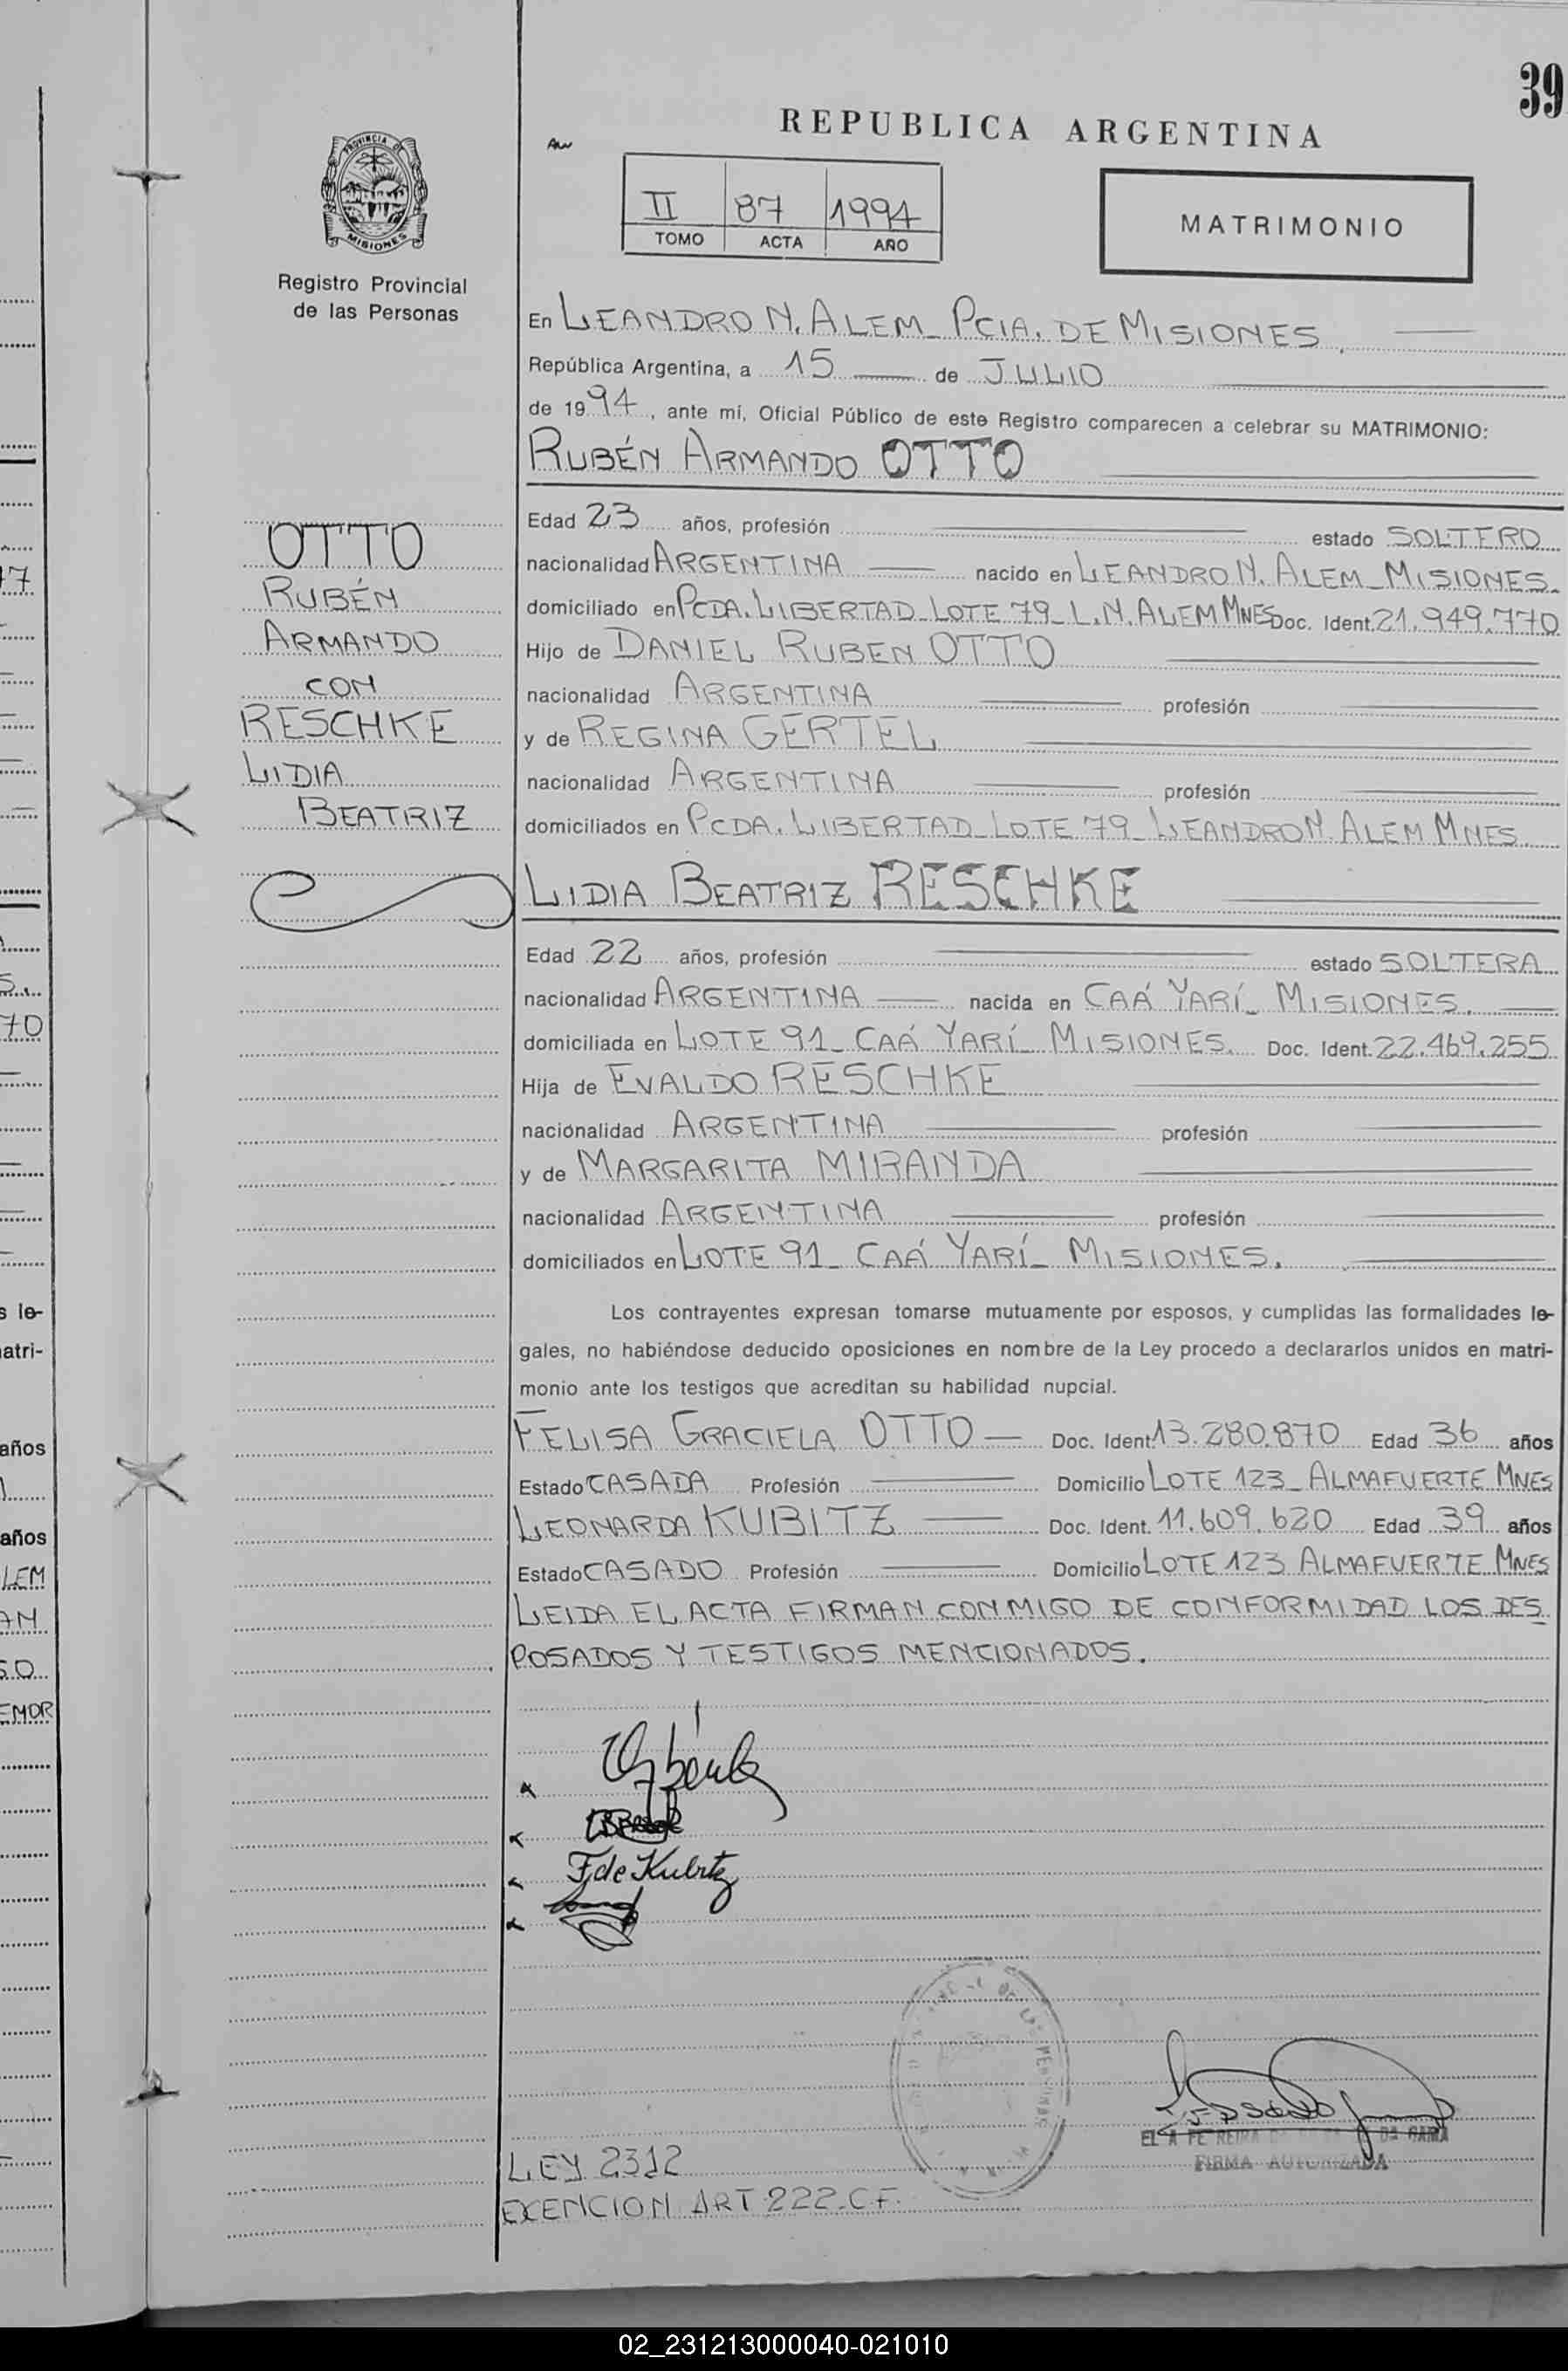 39
REPUBLICA ARGENTINA
PROVINCIA DE
MISIONES
II 87 1994
TOMO ACTA AÑO
MATRIMONIO
Registro Provincial
de las Personas
En LEANDRO N. ALEM_ PCIA. DE MISIONES.
República Argentina, a 15 de JULIO
de 1994, ante mí, Oficial Público de este Registro comparecen a celebrar su MATRIMONIO:
RUBÉN ARMANDO OTTO
OTTO
RUBÉN
ARMANDO
CON
RESCHKE
LIDIA
BEATRIZ
Edad 23 años, profesión estado SOLTERO
nacionalidad ARGENTINA nacido en LEANDRO N. ALEM_MISIONES.
domiciliado en PCDA. LIBERTAD_LOTE 79_L.N.ALEM MNES Doc. Ident. 21.949.770
Hijo de DANIEL RUBEN OTTO
nacionalidad ARGENTINA profesión
y de REGINA GERTEL
nacionalidad ARGENTINA profesión
domiciliados en PCDA. LIBERTAD_LOTE 79_LEANDRO N. ALEM MNES.
LIDIA BEATRIZ RESCHKE
Edad 22 años, profesión estado SOLTERA
nacionalidad ARGENTINA nacida en CAÁ YARÍ_ MISIONES.
domiciliada en LOTE 91_ CAÁ YARÍ_ MISIONES. Doc. Ident. 22.469.255
Hija de EVALDO RESCHKE
nacionalidad ARGENTINA profesión
y de MARGARITA MIRANDA
nacionalidad ARGENTINA profesión
domiciliados en LOTE 91_ CAÁ YARÍ_ MISIONES.
Los contrayentes expresan tomarse mutuamente por esposos, y cumplidas las formalidades le-
gales, no habiéndose deducido oposiciones en nombre de la Ley procedo a declararlos unidos en matri-
monio ante los testigos que acreditan su habilidad nupcial.
FELISA GRACIELA OTTO Doc. Ident. 13.280.870 Edad 36 años
Estado CASADA Profesión Domicilio LOTE 123_ ALMAFUERTE MNES
LEONARDA KUBITZ Doc. Ident. 11.609.620 Edad 39 años
Estado CASADO Profesión Domicilio LOTE 123 ALMAFUERTE MNES
LEIDA EL ACTA FIRMAN CONMIGO DE CONFORMIDAD LOS DES
POSADOS Y TESTIGOS MENCIONADOS.
F de Kubitz
DA GAMA
FIRMA AUTORIZADA
LEY 2312
EXENCION ART. 222. C F.
02_231213000040-021010